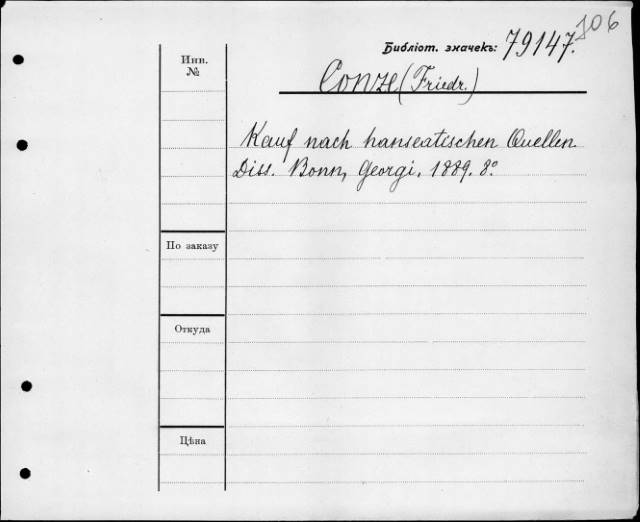 106
Библіот. значекъ: 79147.
Инв. №
Conze (Friedr.)
Kauf nach hanseatischen Quellen.
Diss. Bonn, Georgi, 1889. 8°
По заказу
Откуда
Цѣна